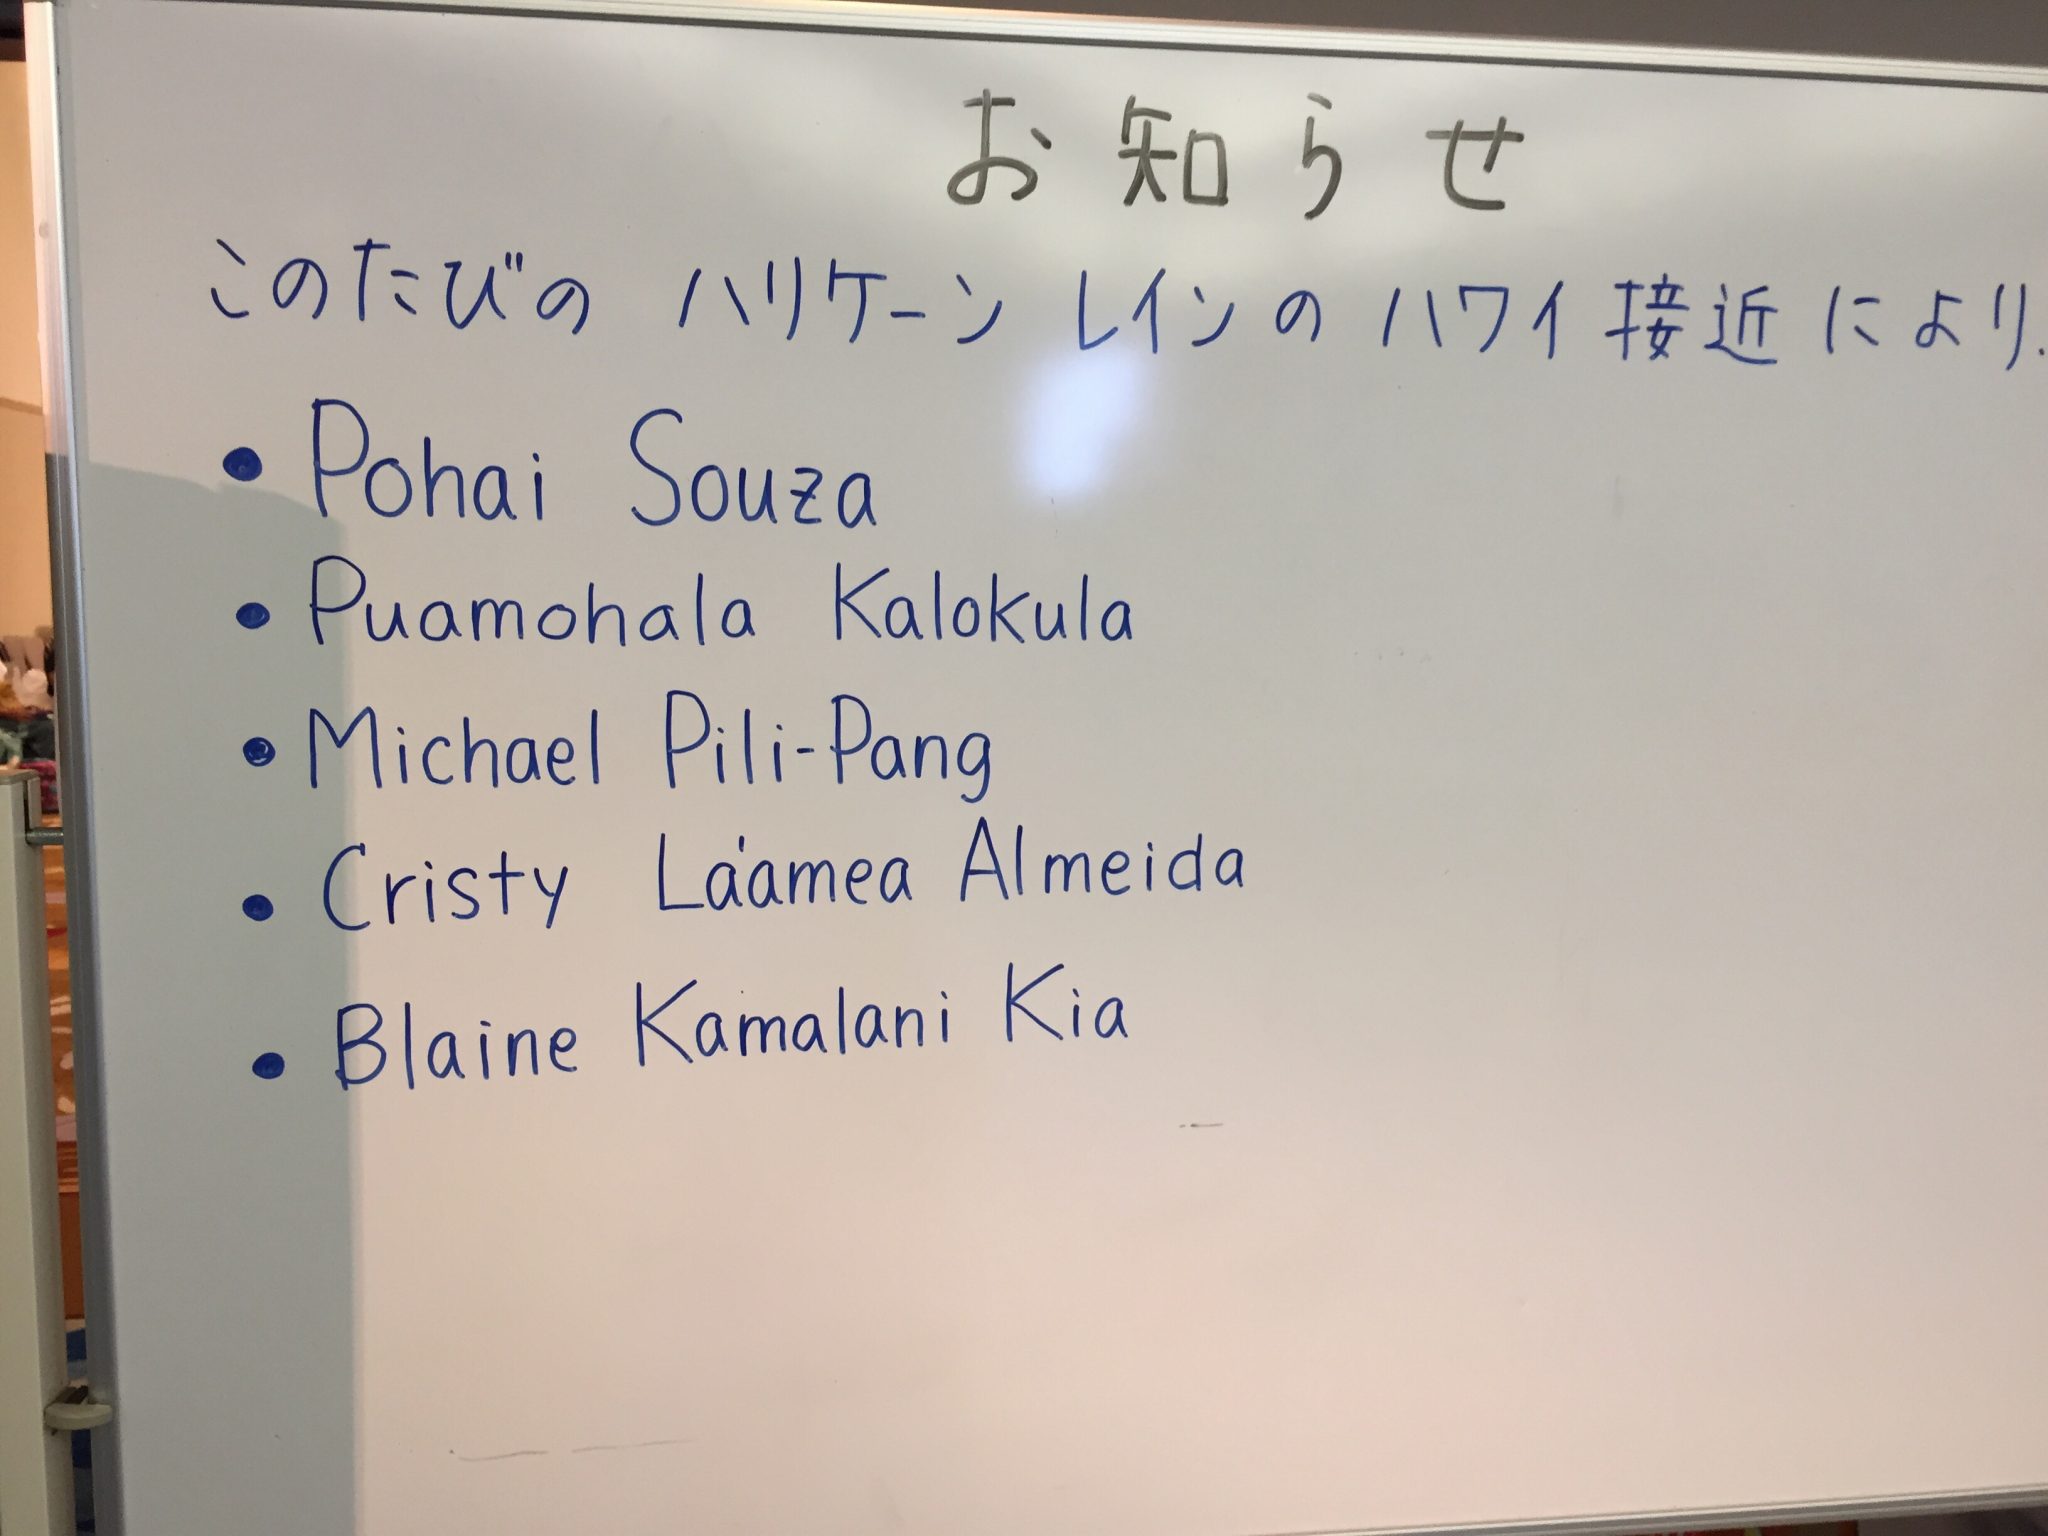 お知らせ
このたびの ハリケーン レインの ハワイ接近により.
• Pohai Souza
• Puamohala Kalokula
• Michael Pili-Pang
• Cristy La'amea Almeida
• Blaine Kamalani Kia